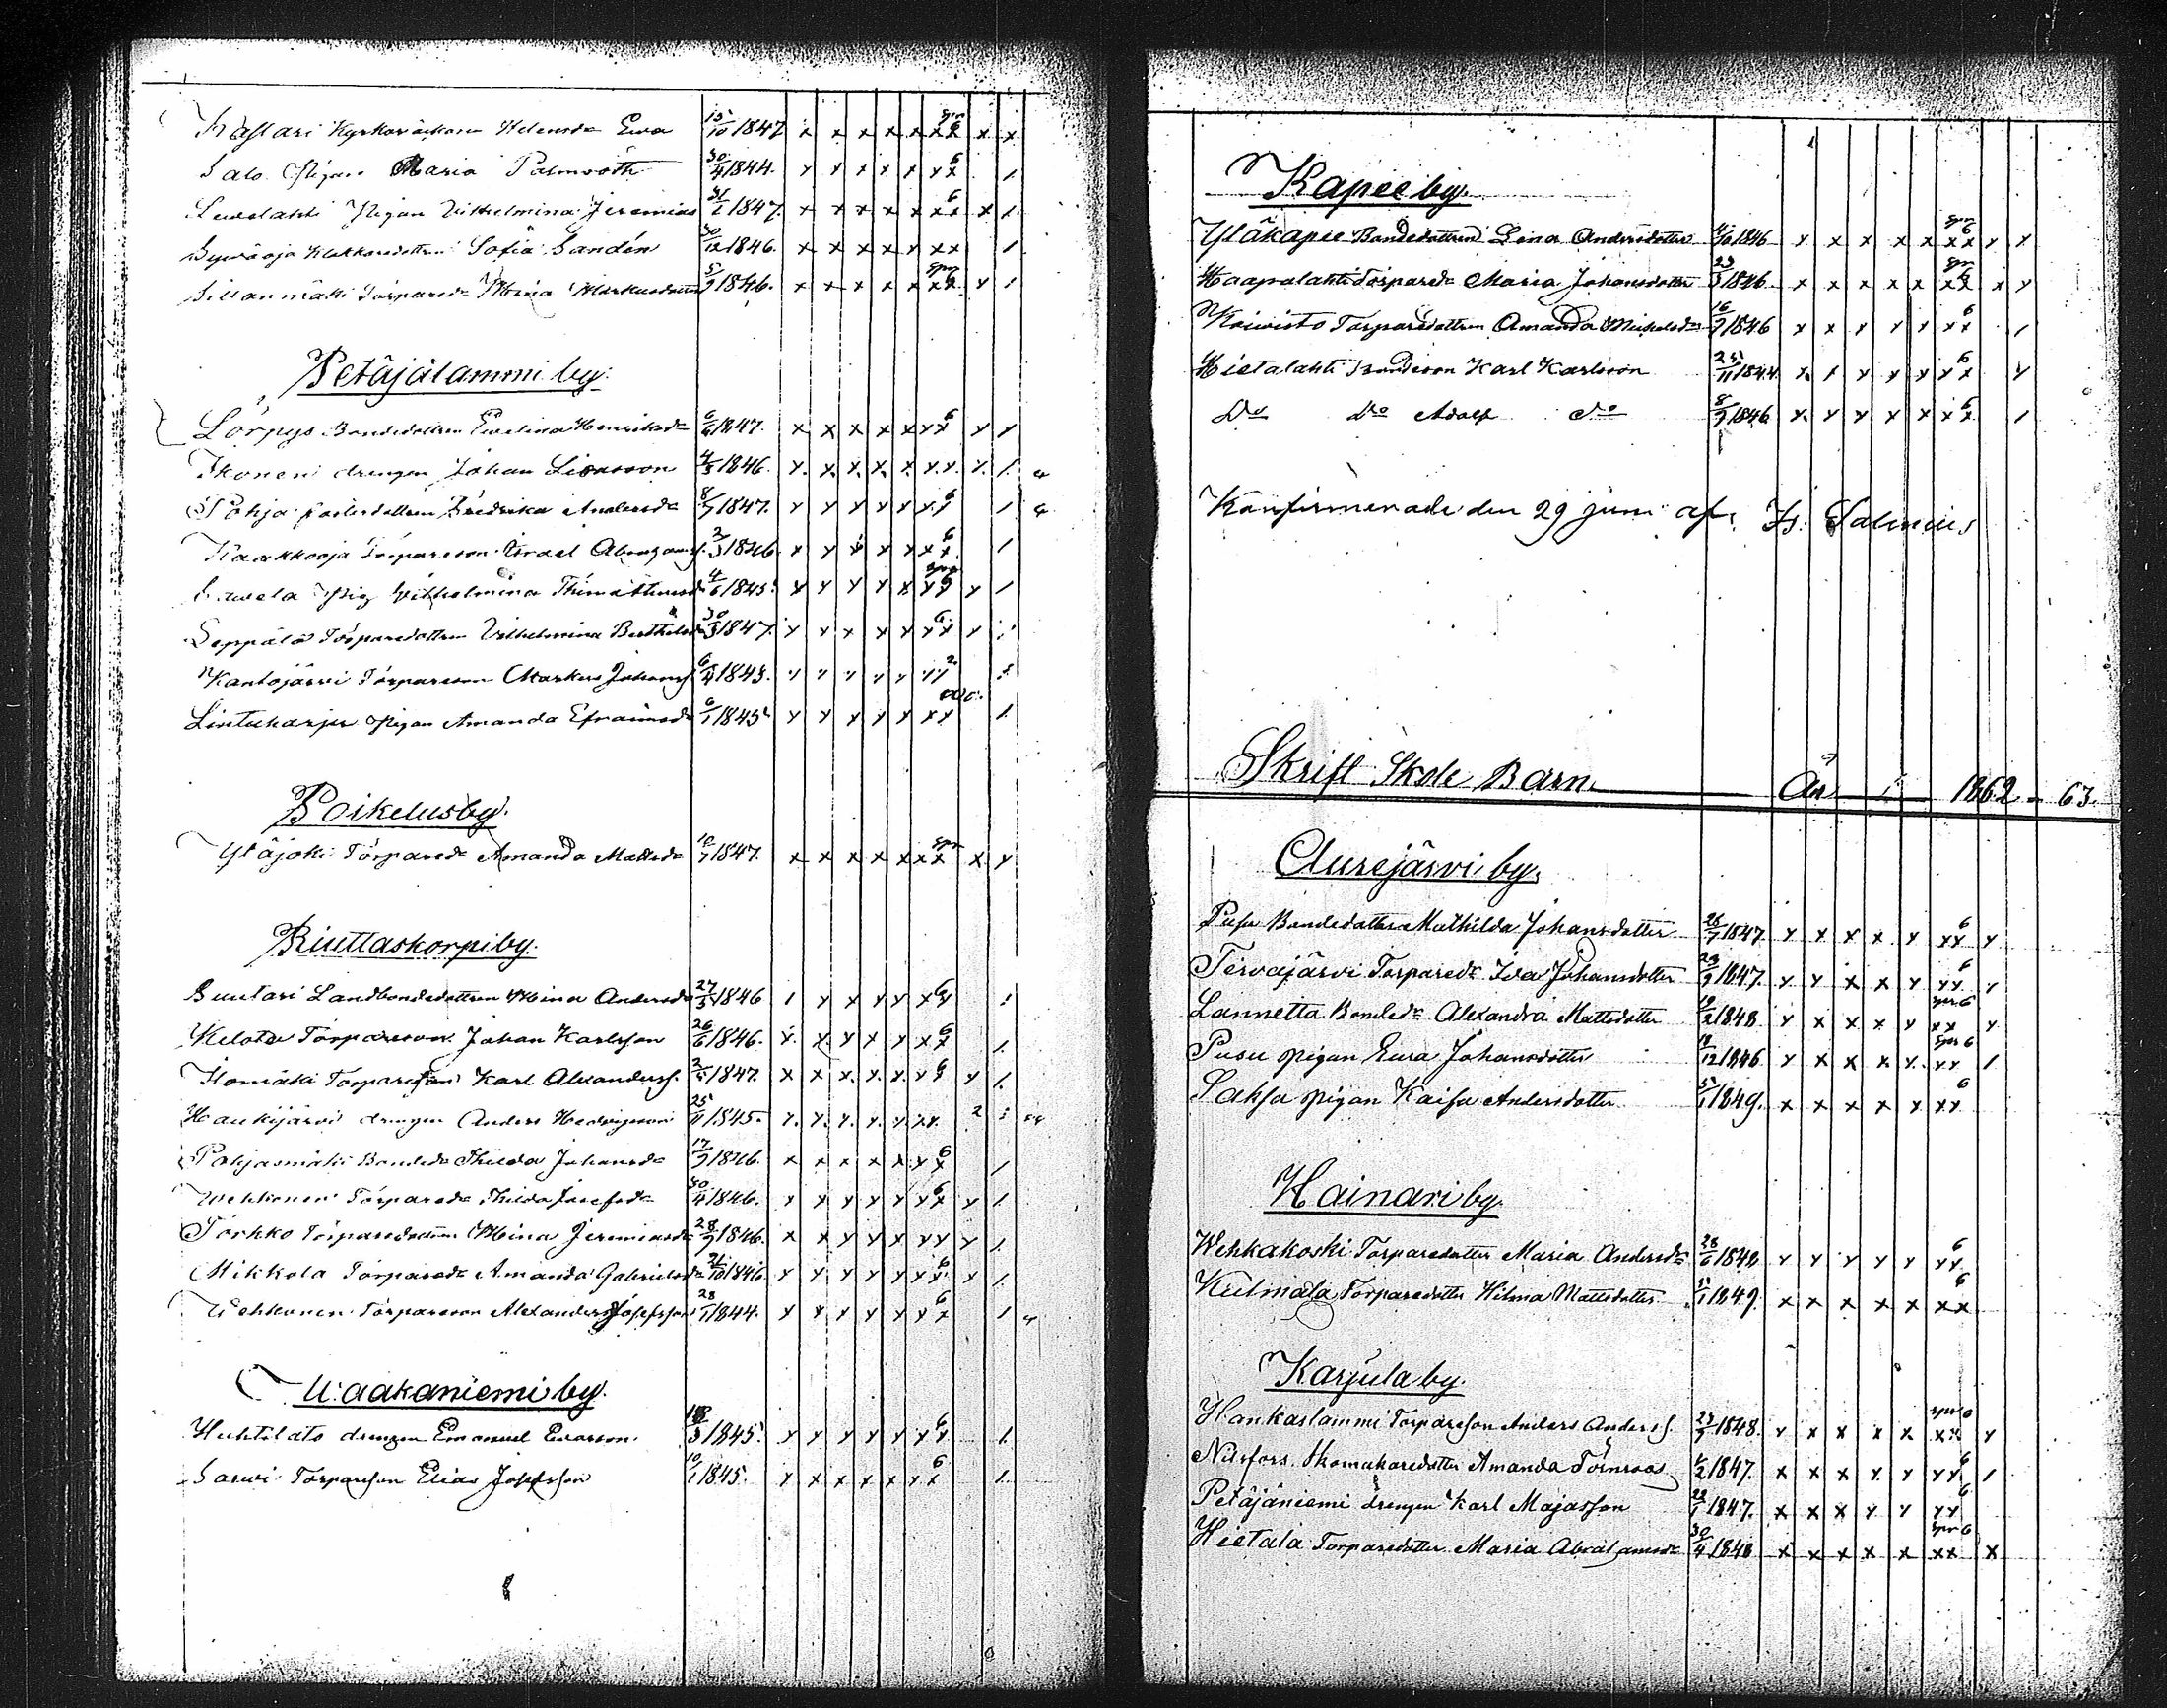 Kyrkoväckare Helensdr Ewa 15/10 1847 x x x x x xx spr 6 x x
Salo Pigan Maria Palmroth 30/4 1844. x x x x x xx 6 1.
Pigan Vilhelmina Jeremias 1847. x x x x x xx 6 x 1.
Klokkaredottren Sofia Sandén 30/12 1846. x x x x x xx 1
Sillanmäki Torpareda Mina Markusdotter 1846. x x x x x xx spr 6 x 1
Petäjälammi by.
Lörpys Bondedottren Ewelina Henriksda 6/4 1847. x x x x x xx 6 x x
Ikonen drengen Johan Lisasson 4/3 1846. x. x. x. x. x x.x. x. 1. 4
Pohja dottren Fredrika Andersda 8/7 1847. x x x x x xx 6 1 4
Kaakkooja Torpareson Israel Abrahams. 3/3 1846 x x x x x xx 6 1
Pig Vilhelmina 4/6 1845. x x x x x xx spr 6 x 1
Seppälä Torparedottren Vilhelmina 30/3 1847. x x x x x xx 6 x
Kantojärvi Torpareson Markus Johanss. 6/4 1843. x x x x x xx 2
Lintuharju Pigan Amanda Efraimsd 6/1 1845 x x x x x xx 1.
Poikelusby.
Yläjoki Torpareda Amanda Mattsda 10/7 1847. x x x x x xx spr x x
Riuttaskorpiby.
Landbondedottren Mina Andersda 27/3 1846 1 x x x x xx 6
Kelota Torpareson Johan Karlsson 26/6 1846. x. x. x x x xx 6 1.
Torpareson Karl Alexanderss. 1847. x x x. x. x. xx 6 x 1.
Haukijärvi drengen Anders Hedvigsson 25/11 1845. x. x. x. x. x. x.x. 2
Pohjasmäki Bondeda Thilda Johansda 17/9 1846. x x x x x xx 6 1
Wehkonen Torpareda Thilda Josefsda 30/4 1846. x x x x x xx 6 x 1.
Torkko Torparedottren Mina Jeremiasda 28/9 1846. x x x x x xx x 1.
Mikkola Torpareda Amanda Gabrielsda 21/10 1846 x x x x x xx 6 x 1.
Wehkonen Torpareson Alexander Josefsson 28/1 1844. x x x x x xx 6 1 4
Waakaniemi by.
Huhtilato drengen Emanuel Evasson. 18/3 1845. x x x x x xx 6 1.
Sarwi Torpareson Elias Josefsson 10/1 1845. x x x x x xx 6 1.
Kapee by.
Yläkapee Bondedottren Lina Andersdotter 4/10 1846 x x x x x xx spr 6 x x
Haapalahti Torpareda Maria Johansdotter 23/3 1846. x x x x x xx spr 6 x x
Koivisto Torparedottren Amanda Mickelsda 16/9 1846 x x x x x xx 6 1
Hietalahti Bondeson Karl Karlsson 25/11 1844. x. x x x x xx 6 x
Do do Adolf do 8/9 1846. x. x x x x xx 6 1
Konfirmerade den 29 juni af Is. Salenius
Skrift Skole Barn År 1862-63.
Aurejärvi by.
Pusu Bondedotter Mathilda Johansdotter 28/7 1847. x x x x x xx 6 x
Tervajärvi Torpareda Ida Johansdotter 29/9 1847. x x x x x xx 6 x
Lannetta Bondeda Alexandra Mattsdotter 19/2 1848. x x x x x xx spr 6 x
Pusu pigan Eva Johansdotter 19/12 1846 x x x x x. xx spr 6 1
Saksa pigan Kaisa Andersdotter 5/1 1849. x x x x x xx 6
Hainari by.
Wehkakoski Torparedotter Maria Andersda 28/6 1848 x x x x x xx 6
Kulmala Torparedotter Hilma Mattsdotter 11/1 1849. x x x x x xx 6
Karjula by.
Hankaslammi Torpareson Anders Anderss. 23/7 1848. x x x x x xx spr 6 x
Nisfors Skomakaredotter Amanda Törnroos 6/2 1847. x x x x x xx 6 1
Petäjäniemi drengen Karl Majasson 28/1 1847. x x x x x xx 6
Hietala Torparedotter Maria Abrahamsda 30/4 1848 x x x x x xx spr 6 x